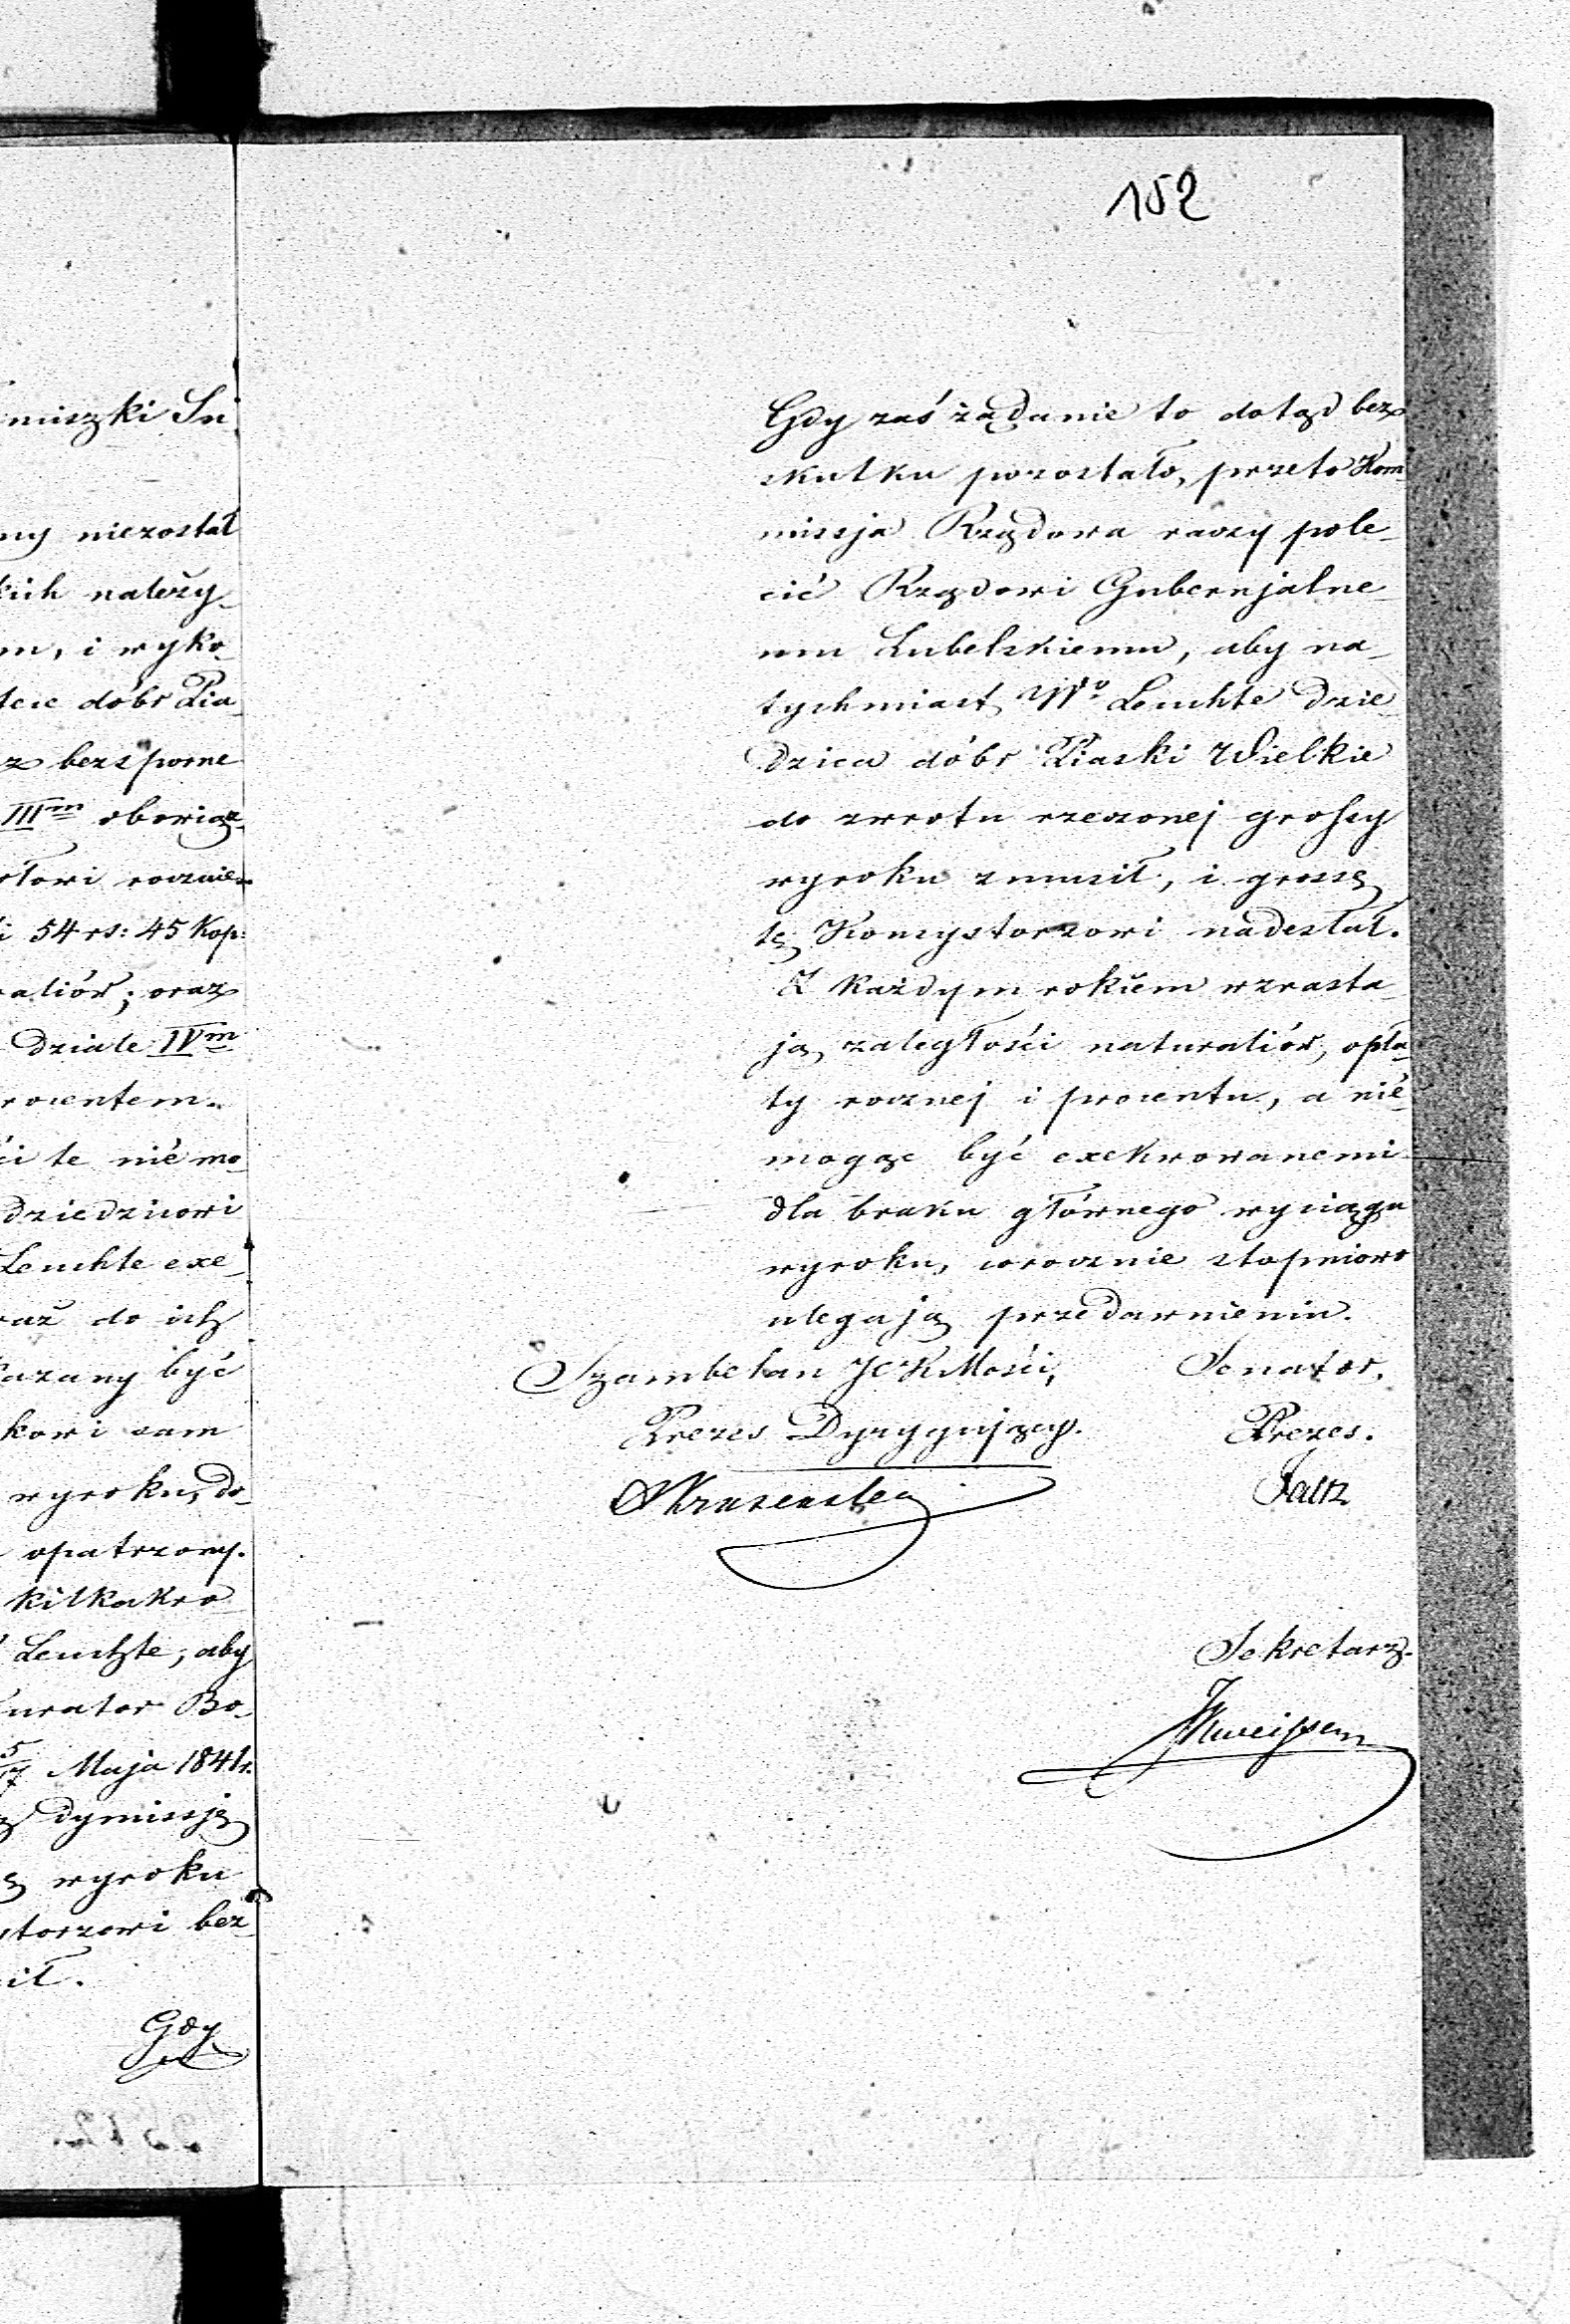 miszki Sn
ny niezostał
kich należy_
m, i wyko_
tece dóbr Pia_
z bezsporne
IIIm obowiąz_
rocznie
54 rs: 45 Kop:
aliów; oraz
dziale IVm
rocentem.
ci te nié mo_
dziedzicowi
Leuchte exe_
raź do ich
kazany być
kowi sam
wyroku, do_
opatrzony.
kilkakro_
Leuchte, aby
urator Bo_
5/17 Maja 1841r.
dymissję
wyroku
ystorzowi bez_
ił.
Gdy
152
Gdy zaś żądanie to dotąd bez
skutku pozostało, przeto Kom_
missja Rządowa raczy pole_
cić Rządowi Gubernjalne_
mu Lubelskiemu, aby na_
tychmiast Wo Leuchte Dzie_
dzica dóbr Piaski Wielkie
do zwrotu rzeczonej grossy
wyroku zmusił, i grossę
tę Konsystorzowi nadesłał.
Z każdym rokiem wzrasta_
ją zaległości naturaliów, opła_
ty rocznej i procentu, a nié
mogąc być exekwowanemi
dla braku głównego wyciągu
wyroku, corocznie stopniowo
ulegają przedawnieniu.
Szambelan JCKMości, Senator,
Prezes Dyrygujący. Prezes.
Krusenstern Faltz
Sekretarz.